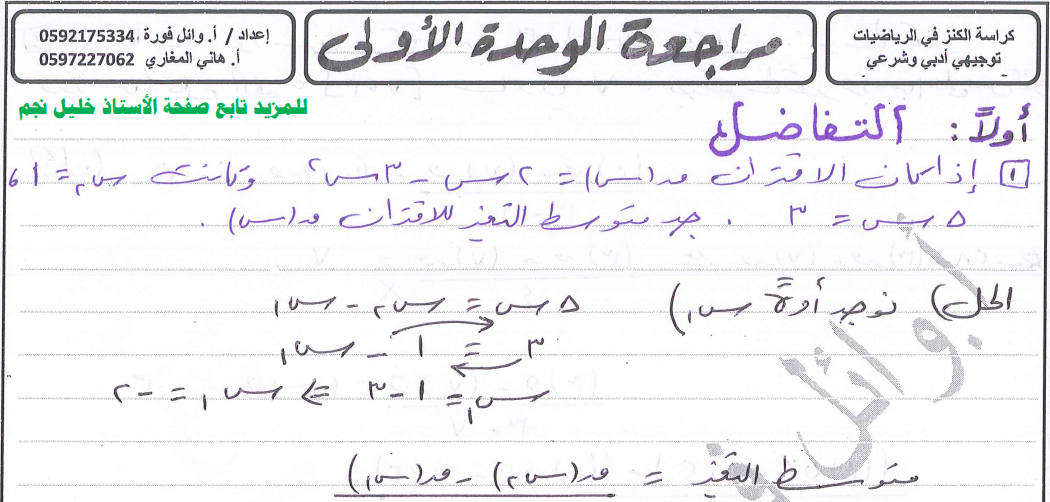 كراسة الكنز في الرياضيات
توجيهي أدبي وشرعي
مراجعة الوحدة الأولى
إعداد / أ. وائل فورة 0592175334
أ. هاني المغاري 0597227062
للمزيد تابع صفحة الأستاذ خليل نجم
أولاً: التفاضل
١ إذا كان الاقتران ق(س) = ٢س - ٣س٢ وكانت س٢ = ١ ،
Δس = ٣ . جد متوسط التغير للاقتران ق(س) .
الحل) نوجد أولاً س١) Δس = س٢ - س١
٣ = ١ - س١
س١ = ١ - ٣ ⇐ س١ = -٢
متوسط التغير = ق(س٢) - ق(س١)
أبو وائل